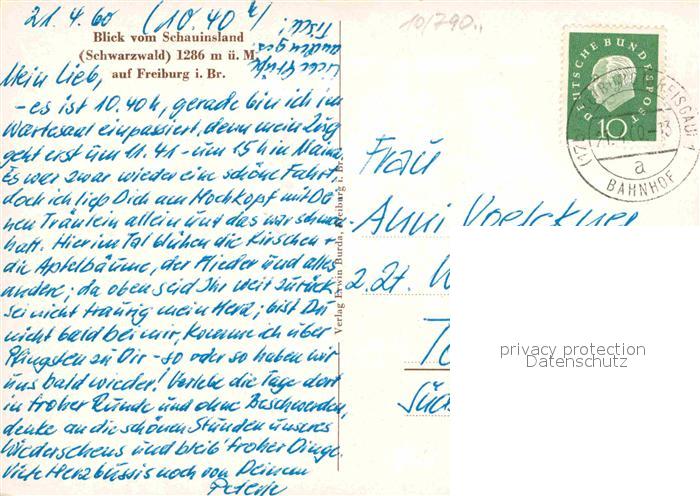 21.4.60 (10.40 h)
Blick vom Schauinsland
(Schwarzwald) 1286 m ü. M.
auf Freiburg i. Br.
Mein Lieb,
– es ist 10.40 h, gerade bin ich im
Wartesaal einpassiert, denn mein Zug
geht erst um 11.41 – um 15 h in Mainz
Es war zwar wieder eine schöne Fahrt,
doch ich ließ Dich am Hochkopf mit Dei
nen Tränlein allein und das war schmerz
haft. Hier im Tal blühen die Kirschen +
die Apfelbäume, der Flieder und alles
andere; da oben seid Ihr weit zurück.
sei nicht traurig mein Herz; bist Du
nicht bald bei mir, komme ich über
Pfingsten zu Dir – so oder so haben wir
uns bald wieder! Verlebe die Tage dort
in froher Runde und ohne Beschwerden,
denke an die schönen Stunden unseres
Wiedersehens und bleib' froher Dinge.
Viele Herzbussis noch von Deinem
Peterle
Verlag Erwin Burda, Freiburg i. Br.
10/790
DEUTSCHE BUNDESPOST
10
a
BAHNHOF
Frau
Anni Voelckner
z.Zt. W
To
Süd
privacy protection
Datenschutz